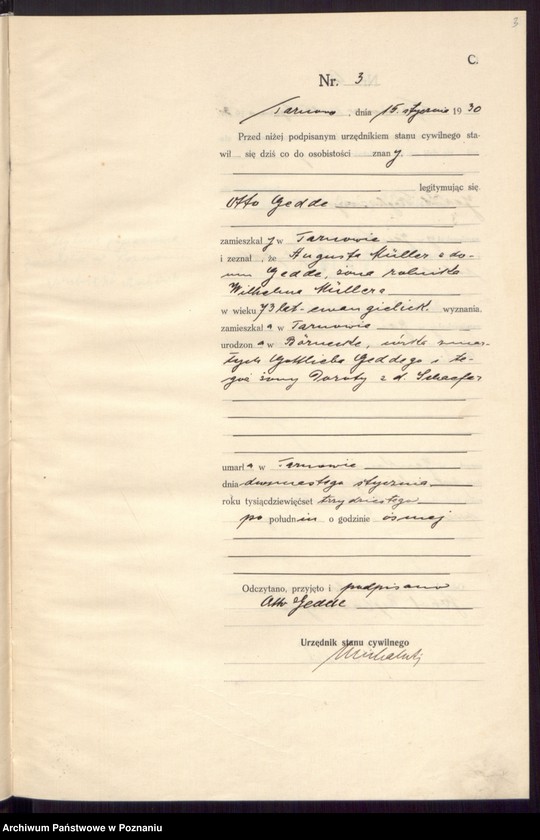 3
C.
Nr. 3
Tarnowo, dnia 15. stycznia 1930
Przed niżej podpisanym urzędnikiem stanu cywilnego sta-
wił się dziś co do osobistości znany,
legitymując się
Otto Gedde
zamieszkały w Tarnowie
i zeznał, że Augusta Müller z do-
mu Gedde, żona rolnika
Wilhelma Müllera
w wieku 73 lat - ewangielick. wyznania.
zamieszkała w Tarnowie
urodzona w Börnecke, córka zmar-
łych Gottlieba Geddego i te-
goż żony Doroty z d. Schaefer
umarła w Tarnowie
dnia dwunastego stycznia
roku tysiącdziewięćset trzydziestego
po południu o godzinie ósmej
Odczytano, przyjęto i podpisano
Otto Gedde
Urzędnik stanu cywilnego
Archiwum Państwowe w Poznaniu